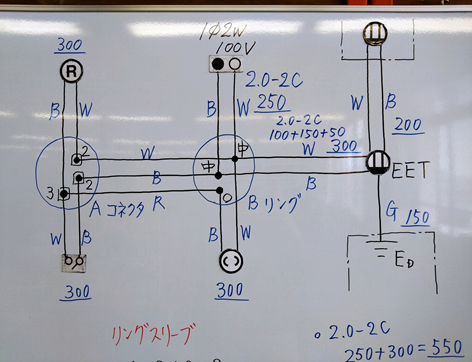 1φ2W
100V
300
R
B W
B W
2.0-2C
250
2.0-2C
100+150+50
W B
200
2 W
中 中
W 300
B
B
EET
3 2
R
A コネクタ
B リング
G 150
W B
B W
E_D
300
300
リングスリーブ
○ 2.0-2C
250+300=550